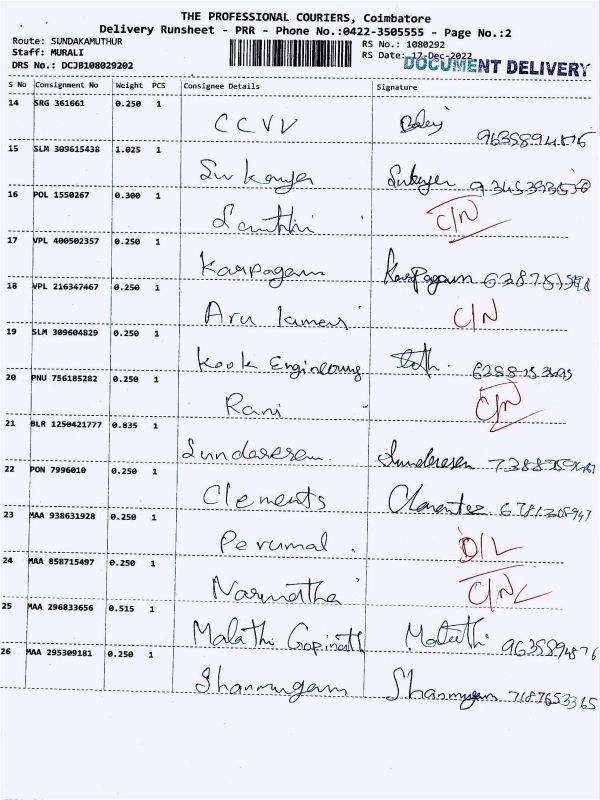 THE PROFESSIONAL COURIERS, Coimbatore
Delivery Runsheet - PRR - Phone No.:0422-3505555 - Page No.:2
Route: SUNDAKAMUTHUR RS No.: 1080292
Staff: MURALI RS Date: 17-Dec-2022
DRS No.: DCJB108029202 DOCUMENT DELIVERY
S No Consignment No Weight PCS Consignee Details Signature
14 SRG 361661 0.250 1 CCVV
15 SLM 309615438 1.025 1 Sukanya Sukanya
16 POL 1550267 0.300 1 Santhi C/N
17 VPL 400502357 0.250 1 Karpagam Karpagam
18 VPL 216347467 0.250 1 Aru kumar C/N
19 SLM 309604829 0.250 1 Kook Engineering
20 PNU 756185282 0.250 1 Rani C/N
21 BLR 1250421777 0.835 1 Sundaresan Sundaresan
22 PON 7996010 0.250 1 Clements
23 MAA 938631928 0.250 1 Perumal. D/L
24 MAA 858715497 0.250 1 Narmatha C/N
25 MAA 296833656 0.515 1 Malathi Gopinath Malathi 9635894876
26 MAA 295309181 0.250 1 Shanmugam Shanmugam 7187653365